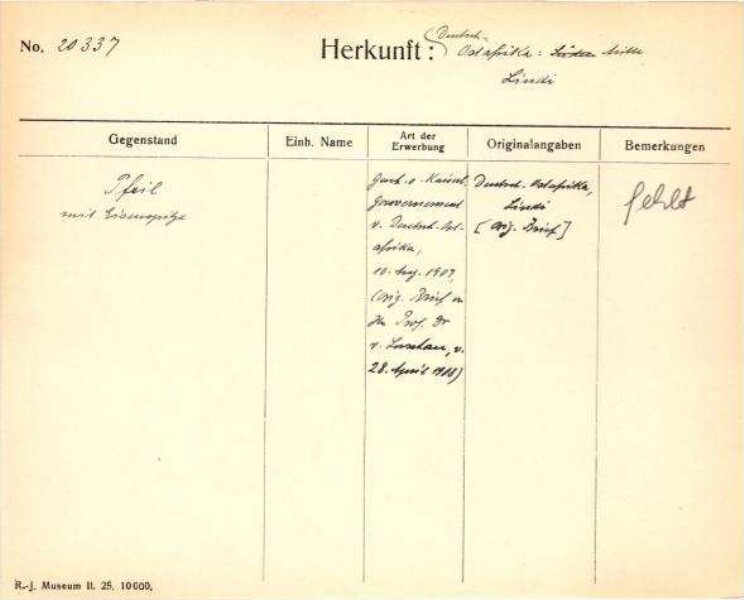 No. 20337
Herkunft: Deutsch-
Ostafrika: Süden Mitte
Lindi
Gegenstand
Einh. Name
Art der Erwerbung
Originalangaben
Bemerkungen
Pfeil
mit Eisenspitze
Gesch. v. Kaiserl.
Gouvernement
v. Deutsch-Ost-
afrika,
10. Aug. 1907,
(Orig. Brief v.
Hn Prof. Dr
v. Luschan, v.
28. April 1908)
Deutsch-Ostafrika,
Lindi
[Orig. Brief]
fehlt
R.-J. Museum II. 25. 10000.